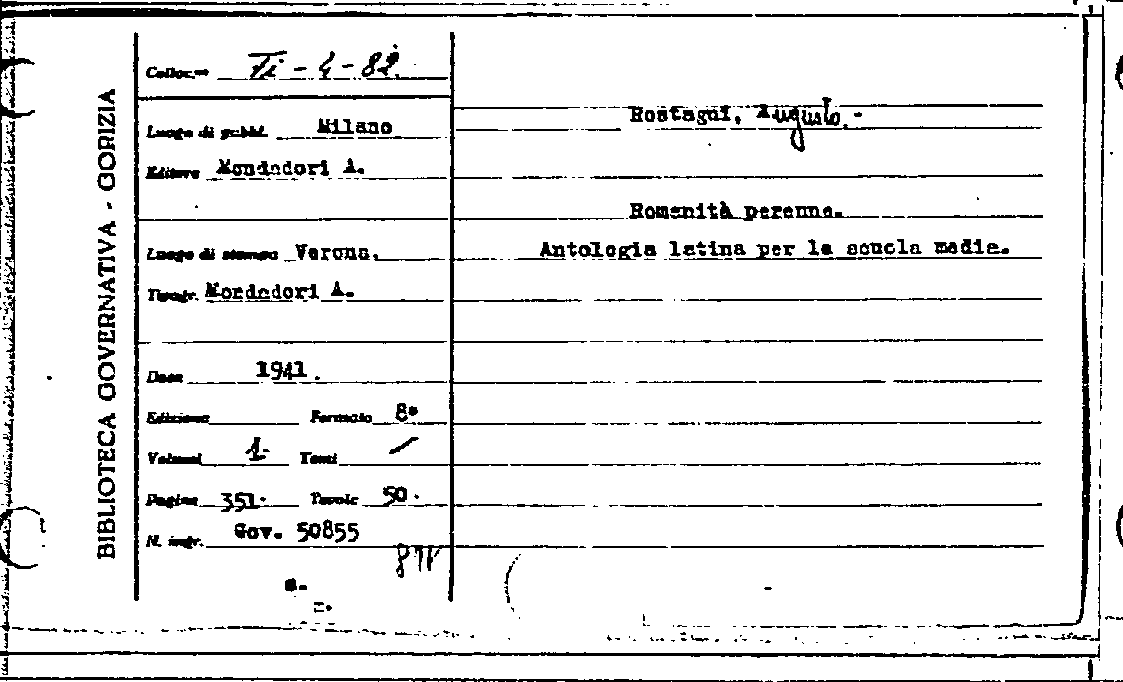 BIBLIOTECA GOVERNATIVA - GORIZIA
Colloc.ne Fi - 4 - 82.
Luogo di pubbl. Milano
Editore Mondadori A.
Luogo di stampa Verona.
Tipogr. Mondadori A.
Data 1941.
Edizione Formato 8°
Volumi 1. Tomi /
Pagine 351. Tavole 50.
N. ingr. Gov. 50855
Rostagni, Augusto.-
Romanità perenne.
Antologia latina per la scuola media.